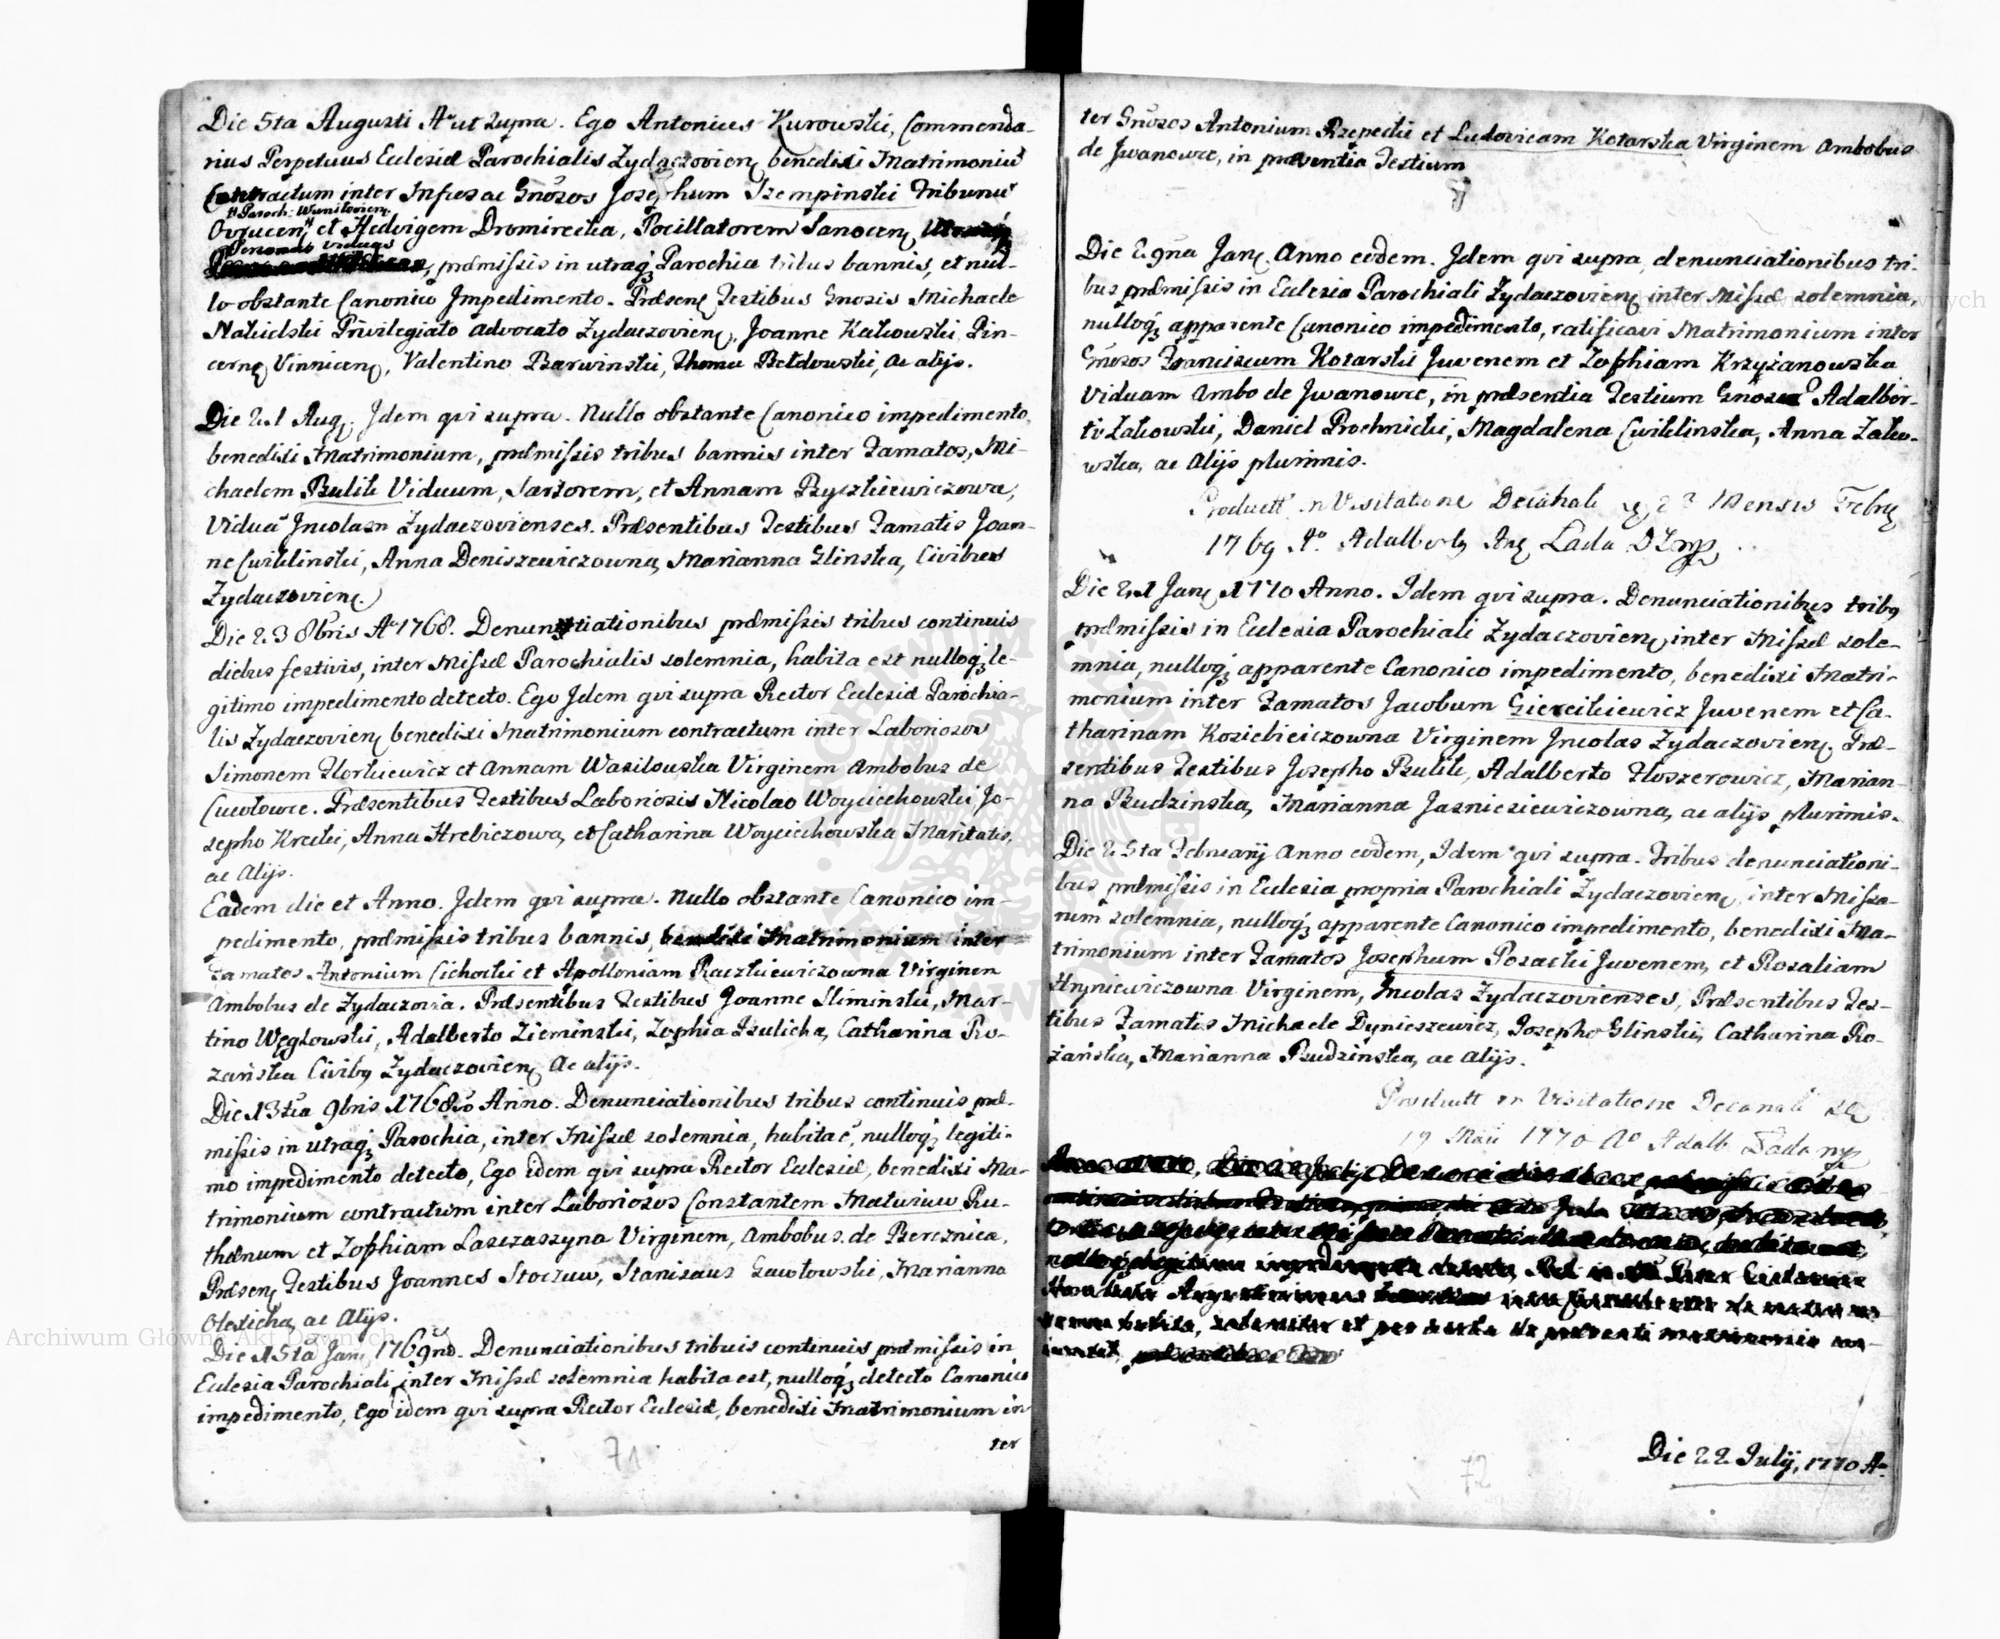 Die 5ta Augusti Aº ut supra. Ego Antonius Kurowski, Commenda-
rius Perpetuus Eclesiæ Parochialis Zydaczovien benedixi Matrimoniū
Contractum inter Infusae Gnosos Josephum Szempinski Tribunū
Paroch:
Ovrucen et Hedvigem Dromirecka, Pocillatorem Sanocen
Penonas viduas
præmissis in utraq Parochia tribus bannis, et nul-
lo obstante Canonico Impedimento. Præsen Testibus Gnosis Michaele
Natielski Privilegiato advocato Zydaczovien, Joanne Kalkowski Pin-
cerne Vinnicen, Valentino Barwinski, Thoma Beldowski, ac alijs.
Die 21 Aug. Idem qvi supra. Nullo obstante Canonico impedimento,
benedixi Matrimonium, præmissis tribus bannis inter Famatos, Mi-
chaelem Bulik Viduum, Sartorem, et Annam Byszkiewiczowa,
Viduā Incolasn Zydaczovienses. Præsentibus Testibus Famatis Joan-
ne Cwiklinski, Anna Deniszewiczowna, Marianna Glinska, Civibus
Zydaczovien.
Die 23 8bris Aº 1768. Denuntiationibus præmissis tribus continuis
diebus festivis, inter Missæ Parochialis solemnia, habita est nulloq le-
gitimo impedimento detecto. Ego Idem qvi supra Rector Eclesiæ Parochia-
lis Zydaczovien benedixi Matrimonium contractum inter Laboriosos
Simonem Horkiewicz et Annam Wasilowska Virginem ambobus de
Cucołowce. Præsentibus Testibus Laboriosis Nicolao Woyciechowski, Jo-
sepho Krecki, Anna Hrebiczowa, et Catharina Woyciechowska Maritatis,
ac Alijs.
Eadem die et Anno. Idem qvi supra. Nullo obstante Canonico im-
pedimento, præmissis tribus bannis, benedixi Matrimonium inter
Famatos Antonium Cichocki et Apolloniam Raczkiewiczowna Virginem
Ambobus de Zydaczovia. Præsentibus Testibus Joanne Sliminski, Mar-
tino Węglowski, Adalberto Zieminski, Zophia Bulicha, Catharina Ro-
zańska Civibq Zydaczovien ac alijs.
Die 13tia 9bris 1768vo Anno. Denunciationibus tribus continuis præ-
missis in utraq Parochia, inter Missæ solemnia, habita ē, nulloq legiti-
mo impedimento detecto, Ego idem qvi supra Rector Eclesiæ, benedixi Ma-
trimonium contractum inter Laboriosos Constantem Maturiw Ru-
thænum et Zophiam Laszaszyna Virginem, Ambobus de Bereznica,
Præsen Testibus Joannes Stoczuw, Stanisaus Gawłowski, Marianna
Olexicha, ac Alijs.
Die 15ta Jan 1769no. Denunciationibus tribuis continuis præmissis in
Eclesia Parochiali inter Missæ solemnia habita est, nulloq detecto Canonico
impedimento, Ego idem qvi supra Rector Eclesiæ, benedixi Matrimonium in-
ter
71
ter Gnosos Antonium Rzepecki et Ludovicam Kotarska Virginem ambobus
de Iwanowce, in præsentia Testium
Die 29na Jan. Anno eodem. Idem qvi supra, denunciationibus tri-
bus præmissis in Eclesia Parochiali Zydaczovien inter Missæ solemnia,
nulloq apparente Canonico impedimento, ratificavi Matrimonium inter
Gnosos Franciscum Kotarski Juvenem et Zophiam Krzyżanowska
Viduam Ambo de Iwanowce, in præsentia Testium Gnosar Adalber-
ti Zakowski, Daniel Prochnicki, Magdalena Cwiklinska, Anna Zako-
wska, ac Alijs plurimis.
Product in Visitatione Mensis Febry
1769 Aº Adalbertq Łada
Die 21 Jan 1770 Anno. Idem qvi supra. Denunciationibus tribq
præmissis in Eclesia Parochiali Zydaczovien inter Missæ sole-
mnia, nulloq apparente Canonico impedimento, benedixi Matri-
monium inter Famatos Jacobum Gierciliewicz Juvenem et Ca-
tharinam Koziebieiczowna Virginem Incolas Zydaczovien. Præ-
sentibus Testibus Josepho Bulik, Adalberto Floszerowicz, Marian-
na Budzinska, Marianna Jasnisiewiczowna, ac alijs plurimis.
Die 25ta Februarij Anno eodem, Idem qvi supra. Tribus denunciationi-
bus præmissis in Eclesia propria Parochiali Zydaczovien, inter Missa-
rum solemnia, nulloq apparente Canonico impedimento, benedixi Ma-
trimonium inter Famatos Josephum Posacki Juvenem, et Rosaliam
Hryniewiczowna Virginem, Incolas Zydaczovienses, Præsentibus Tes-
tibus Famatis Michaele Dynieszewicz, Josepho Glinski, Catharina Ro-
żańska, Marianna Budzinska, ac Alijs.
Product in Visitatione Decanali
19 Maii 1770 Aº Adalb Łada
Die 22 Julij, 1770 Aº
72
Archiwum Główne Akt Dawnych